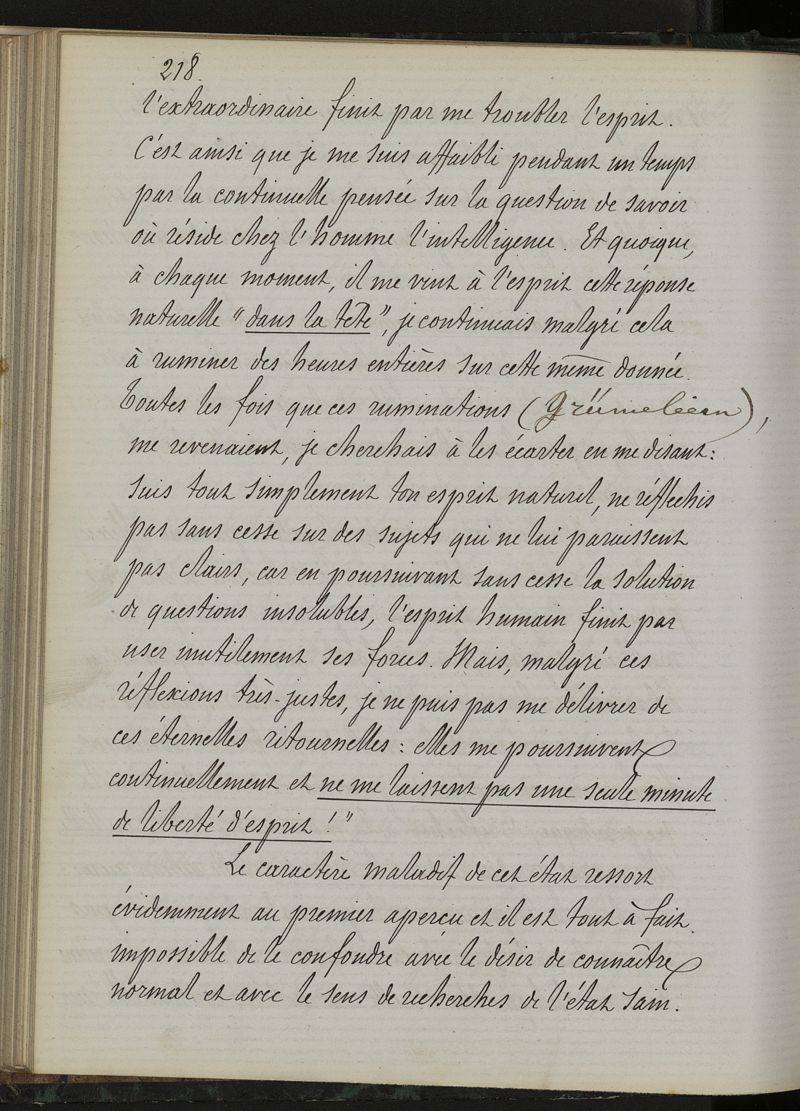 218.
l'extraordinaire finit par me troubler l'esprit.
C'est ainsi que je me suis affaibli pendant un temps
par la continuelle pensée sur la question de savoir
où réside chez l'homme l'intelligence. Et quoique,
à chaque moment, il me vint à l'esprit cette réponse
naturelle "dans la tête", je continuais malgré cela
à ruminer des heures entières sur cette même donnée.
Toutes les fois que ces ruminations (Grümeleien),
me revenaient, je cherchais à les écarter en me disant:
suis tout simplement ton esprit naturel, ne réfléchis
pas sans cesse sur des sujets qui ne lui paraissent
pas clairs, car en poursuivant sans cesse la solution
de questions insolubles, l'esprit humain finit par
user inutilement ses forces. Mais, malgré ces
réflexions très-justes, je ne puis pas me délivrer de
ces éternelles ritournelles: elles me poursuivent
continuellement et ne me laissent pas une seule minute
de liberté d'esprit!"
Le caractère maladif de cet état ressort
évidemment au premier apercu et il est tout à fait
impossible de le confondre avec le désir de connaître
normal et avec le sens de recherches de l'état sain.